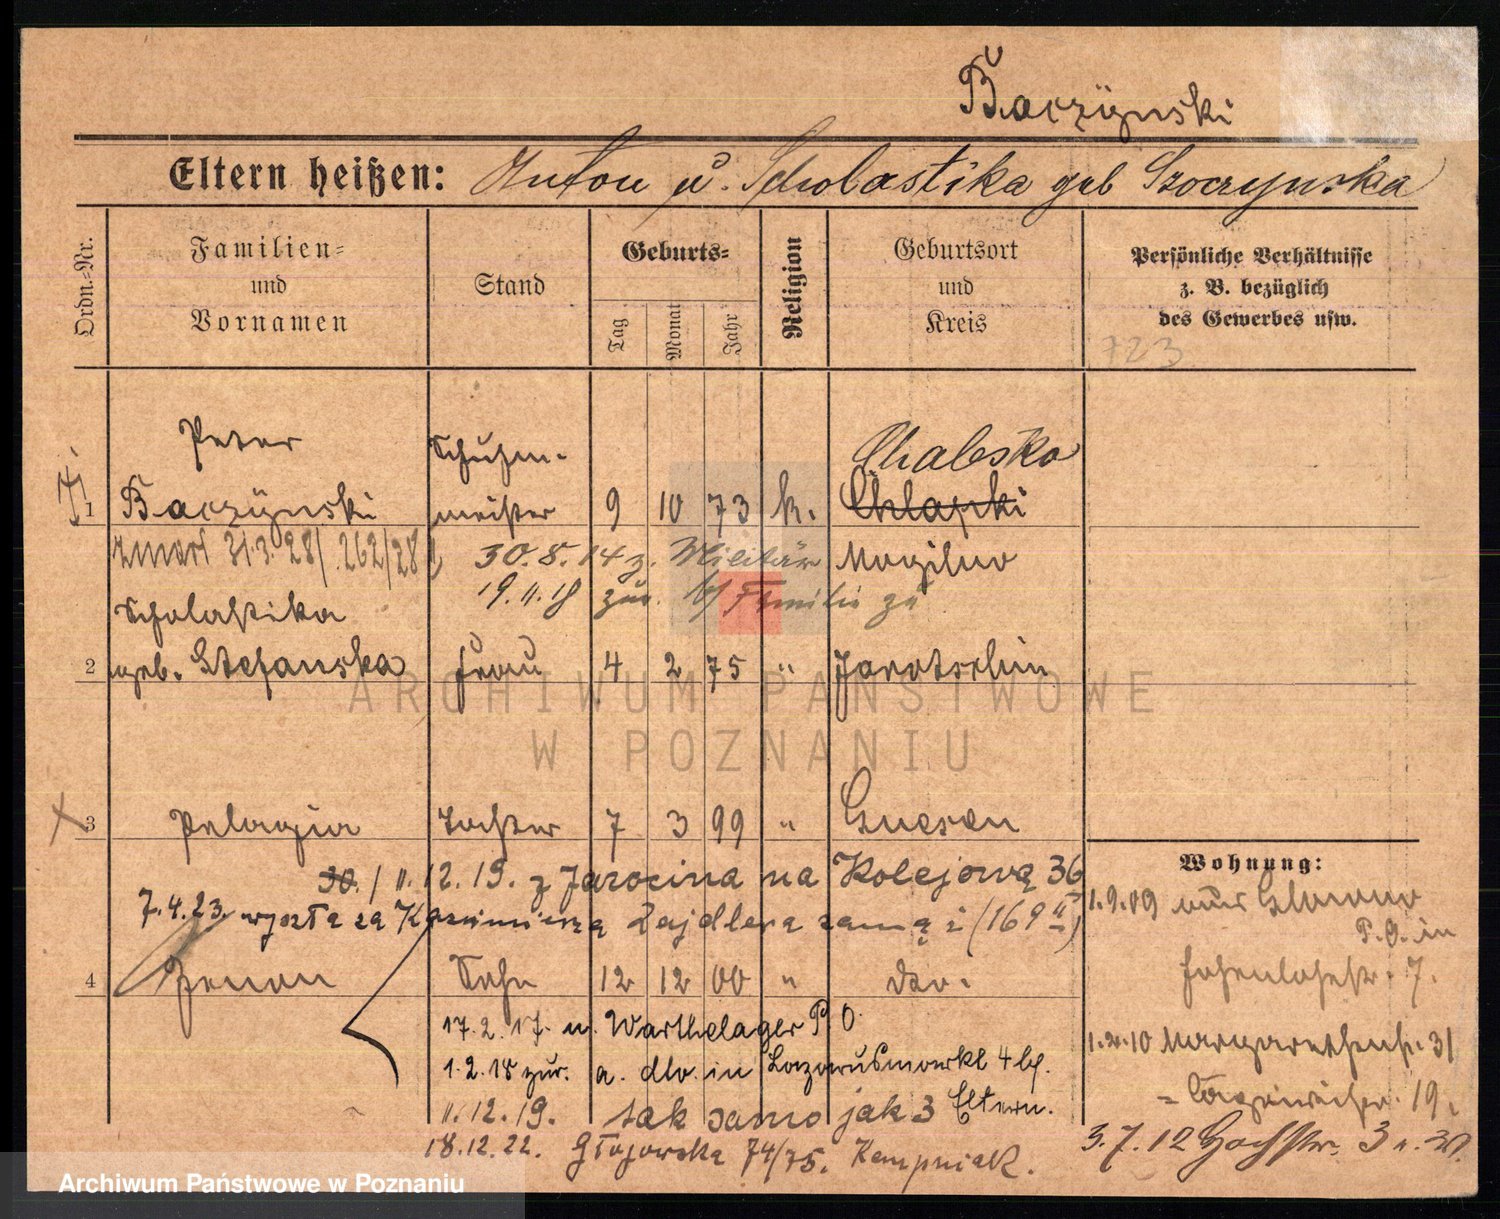 Baczÿnski
Eltern heißen: Anton u. Scholastika geb Szoczynska
Ordn.-Nr.
Familien-
und
Vornamen
Stand
Geburts-
Tag
Monat
Jahr
Religion
Geburtsort
und
Kreis
Persönliche Verhältnisse
z. B. bezüglich
des Gewerbes usw.
723
Peter
Schuhm-
Chabsko
1 Baczÿnski meister 9 10 73 k. Chlapki
zmarł 31.3.28/.262/28 30.8.14 z. Militär Mogilno
19.11.18 zur. Familie zu
Scholastika
2 geb. Stefanska Frau 4 2 75 " Jarotschin
ARCHIWUM PAŃSTWOWE
W POZNANIU
3 Pelagia Tochter 7 3 99 " Gnesen
30./11.12.19. z Jarocina na Kolejową 36
7.4.23. wyszła za Kazimierza Zajdlera zam. (169
4 Zenon Sohn 12 12 00 " dto.
17.2.17. n. Warthelager P O
1.2.18 zur. a. dto. in Lazarusmarkt 4 bf.
11.12.19. tak samo jak 3 Eltern.
18.12.22. Głogowska 74/75. Kempniak.
Wohnung:
1.9.09 aus Glowno
P.O. in
Hohenlohestr. 7.
1.2.10 Margarethenstr. 31
19.
3.7.12 Hochstr. 3
Archiwum Państwowe w Poznaniu